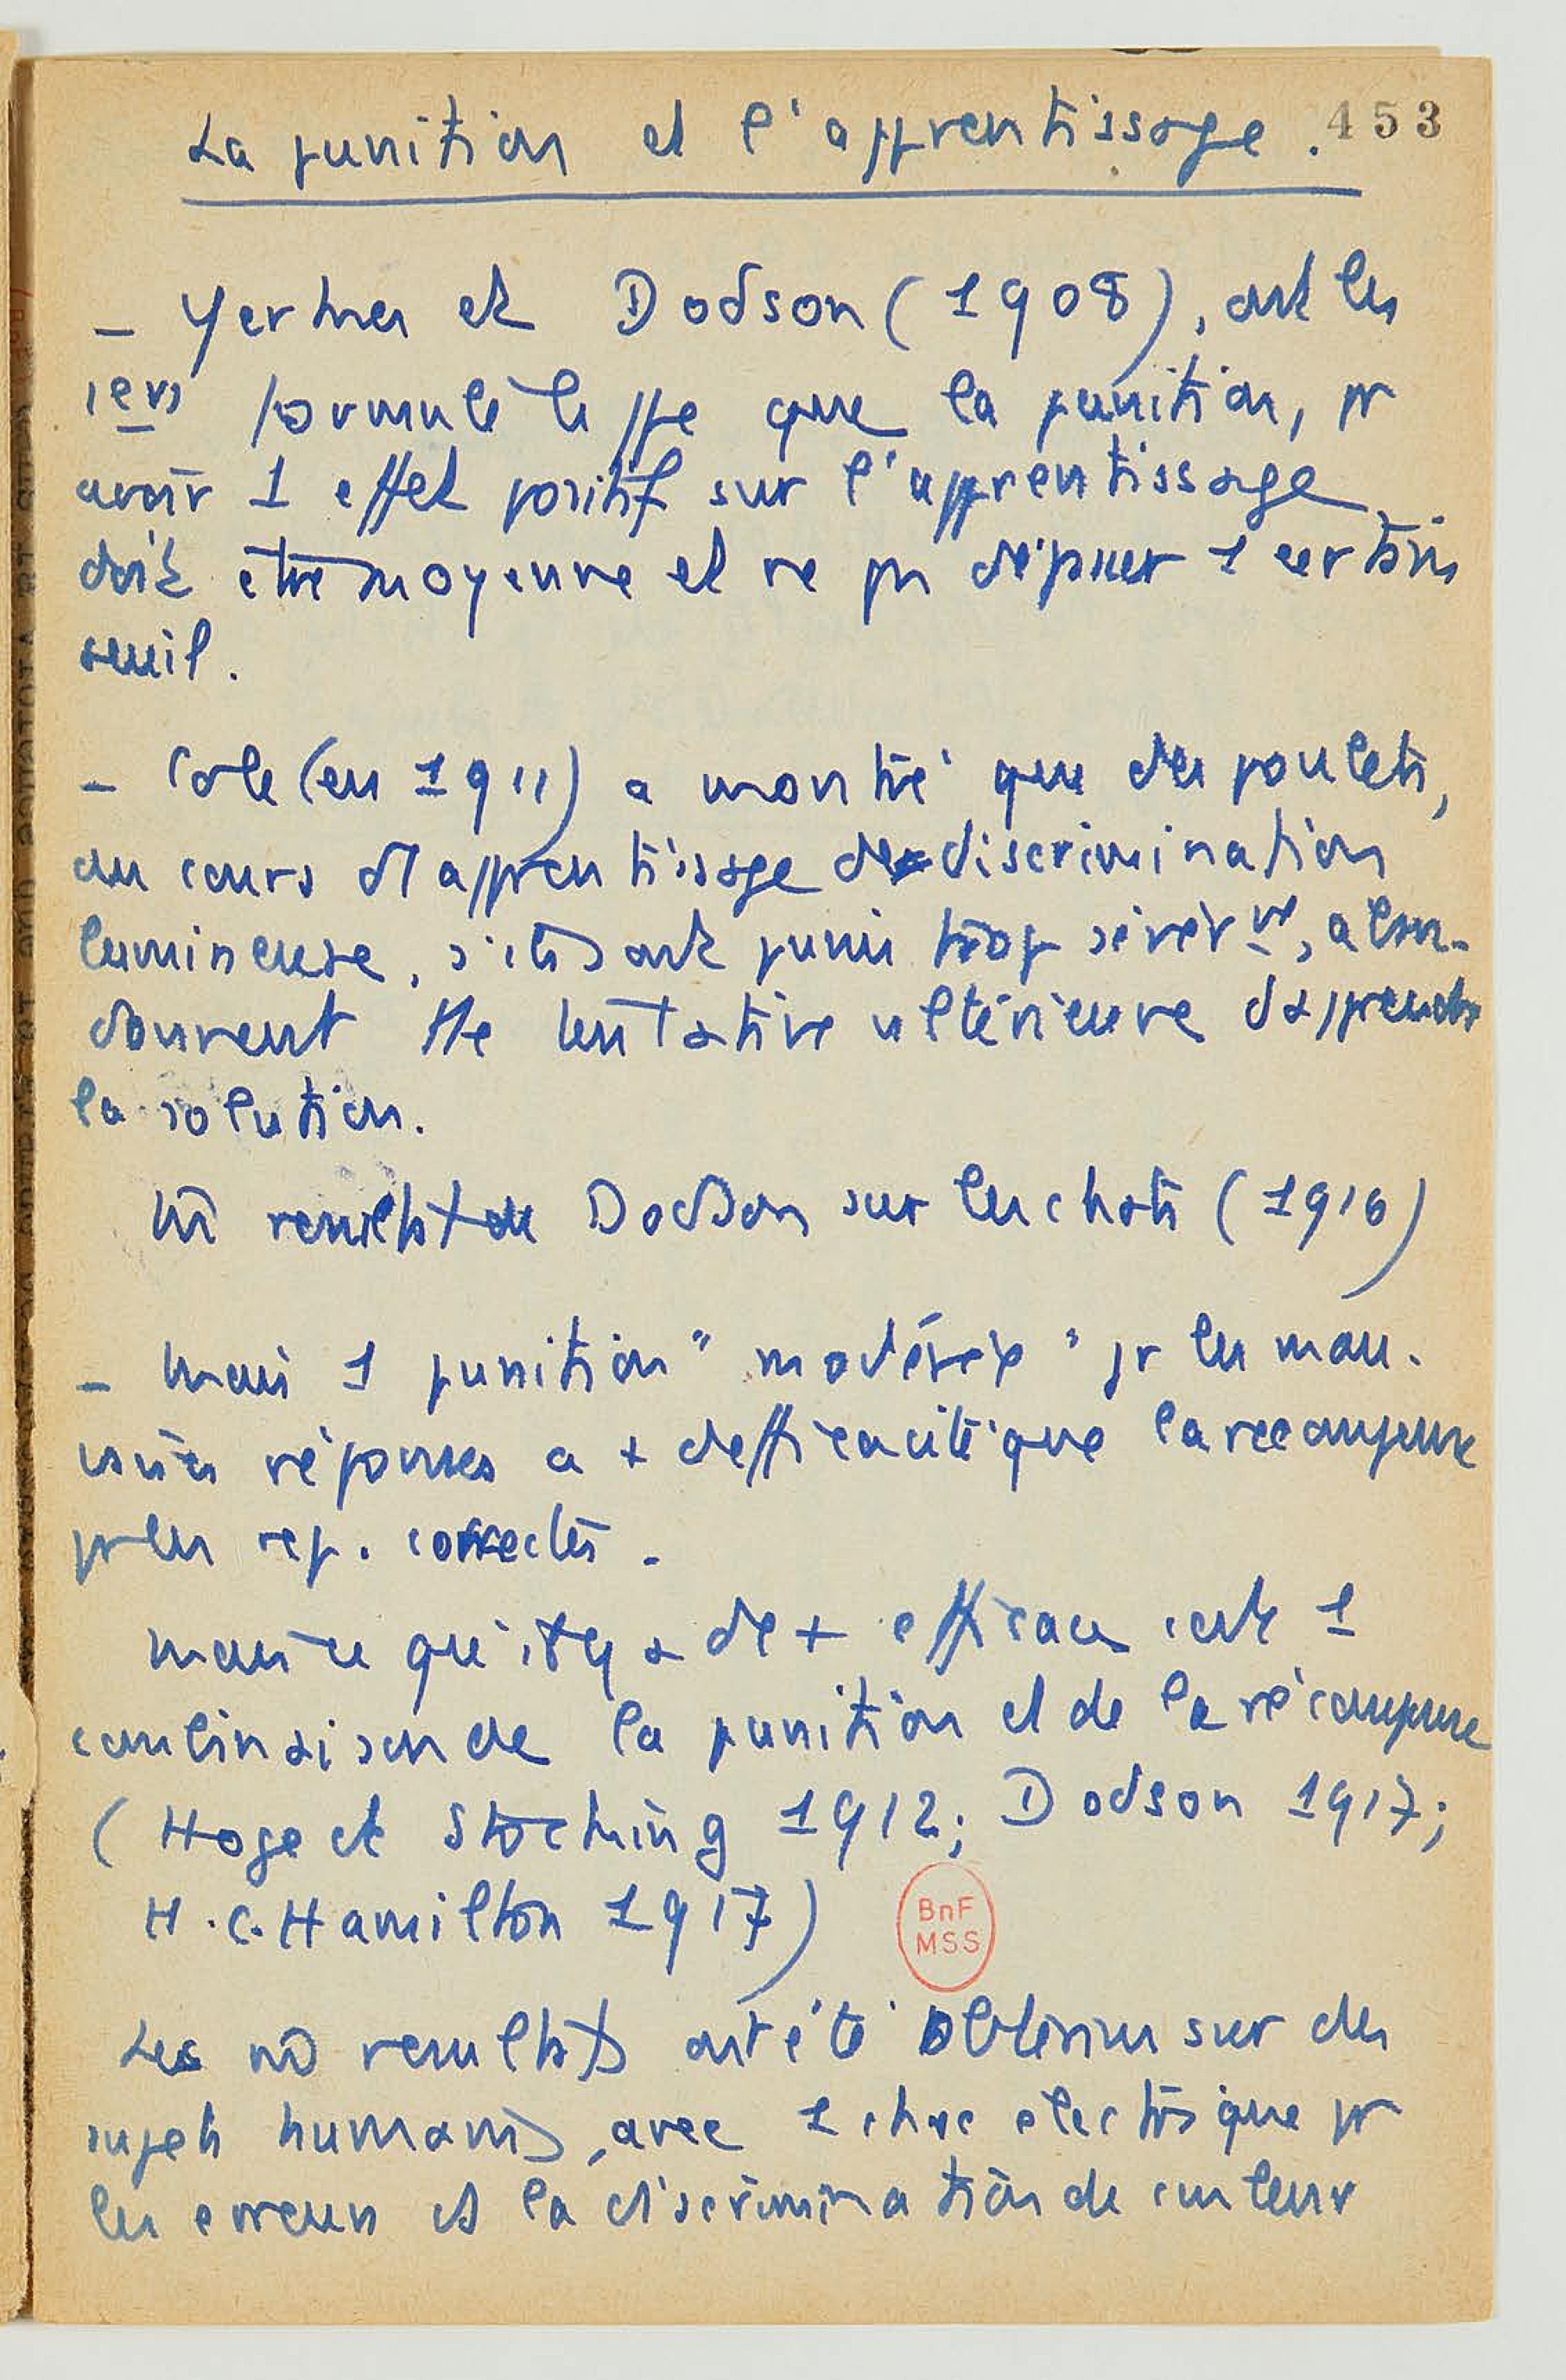 453
La punition et l'apprentissage.
– Yerkes et Dodson (1908), ont les
1ers formulé le ppe que la punition, pr
avoir 1 effet positif sur l'apprentissage
doit être moyenne et ne pas dépasser 1 certain
seuil.
– Cole (en 1911) a montré que des poulets,
au cours d'apprentissage de discrimination
lumineuse, s'ils sont punis trop sévèrmt, aban-
donnent tte tentative ultérieure d'apprendre
la solution.
résultat de Dodson sur les chats (1916)
– mais 1 punition "modérée" pr les mau-
vaises réponses a + d'efficacité que la récompense
pr les rep. correctes.
mais ce qu'il y a de + efficace c'est 1
combinaison de la punition et de la récompense
(Hoge et Stocking 1912; Dodson 1917;
H.C. Hamilton 1917)
BnF
MSS
Les résultats ont été obtenus sur des
sujets humains, avec 1 choc électrique pr
les erreurs et la discrimination de couleur